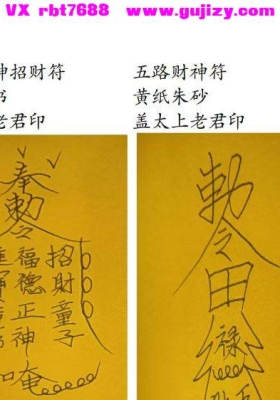 VX rbt7688 www.gujizy.com
神招财符
书
老君印
五路财神符
黄纸朱砂
盖太上老君印
奉
勅
令
招財童子
福德正神
唵
勅
令
田
禄